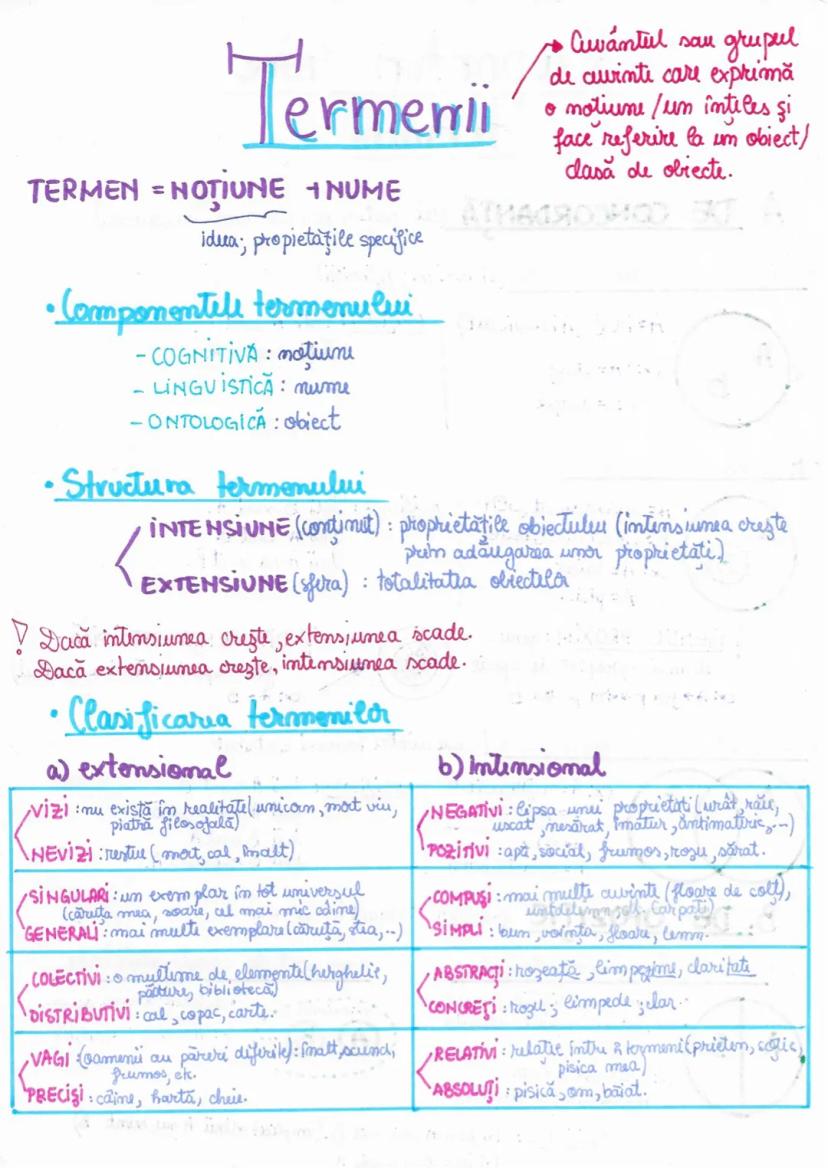 Termenii
Cuvântul sau grupul
de cuvinte care exprimă
o noțiune/un înțeles și
face referire la un obiect/
clasă de obiecte.
TERMEN = NOȚIUNE + NUME
ideea; propietățile specifice
• Componentele termenului
- COGNITIVĂ : noțiune
- LINGVISTICĂ : nume
- ONTOLOGICĂ : obiect
• Structura termenului
INTENSIUNE (conținut) : proprietățile obiectului (intensiunea crește
prin adăugarea unor proprietăți)
EXTENSIUNE (sfera) : totalitatea obiectelor
! Dacă intensiunea crește, extensiunea scade.
Dacă extensiunea crește, intensiunea scade.
• Clasificarea termenilor
a) extensional
b) intensional
VIZI : nu există în realitate (unicorn, mort viu,
piatră filosofală)
NEVIZI : restul (mort, cal, înalt)
NEGATIVI : lipsa unei proprietăți (urât, rău,
uscat, nesărat, imatur, antimateric, ...)
POZITIVI : apă, social, frumos, roșu, sărat.
SINGULARI : un exemplar în tot universul
(căruța mea, soare, cel mai mic câine)
GENERALI : mai multe exemplare (căruță, stea, ...)
COMPUȘI : mai multe cuvinte (floare de colț),
untdelemn, Carpați)
SIMPLI : bun, voință, floare, lemn.
COLECTIVI : o mulțime de elemente (herghelie,
pădure, bibliotecă)
DISTRIBUTIVI : cal, copac, carte.
ABSTRACȚI : rozeață, limpezime, claritate
CONCREȚI : roșu, limpede, clar.
VAGI : (oamenii au păreri diferite) : înalt, scund,
frumos, etc.
PRECIȘI : câine, hartă, cheie.
RELATIVI : relație între 2 termeni (prieten, coleg,
pisica mea)
ABSOLUȚI : pisică, om, băiat.